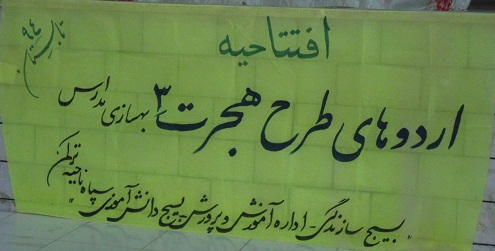 افتتاحیه
تابستان ۹۴
اردوهای طرح هجرت ۳ بهسازی مدارس
"بسیج سازندگی - اداره آموزش و پرورش - بسیج دانش آموزی سپاه ناحیه ترکمن"